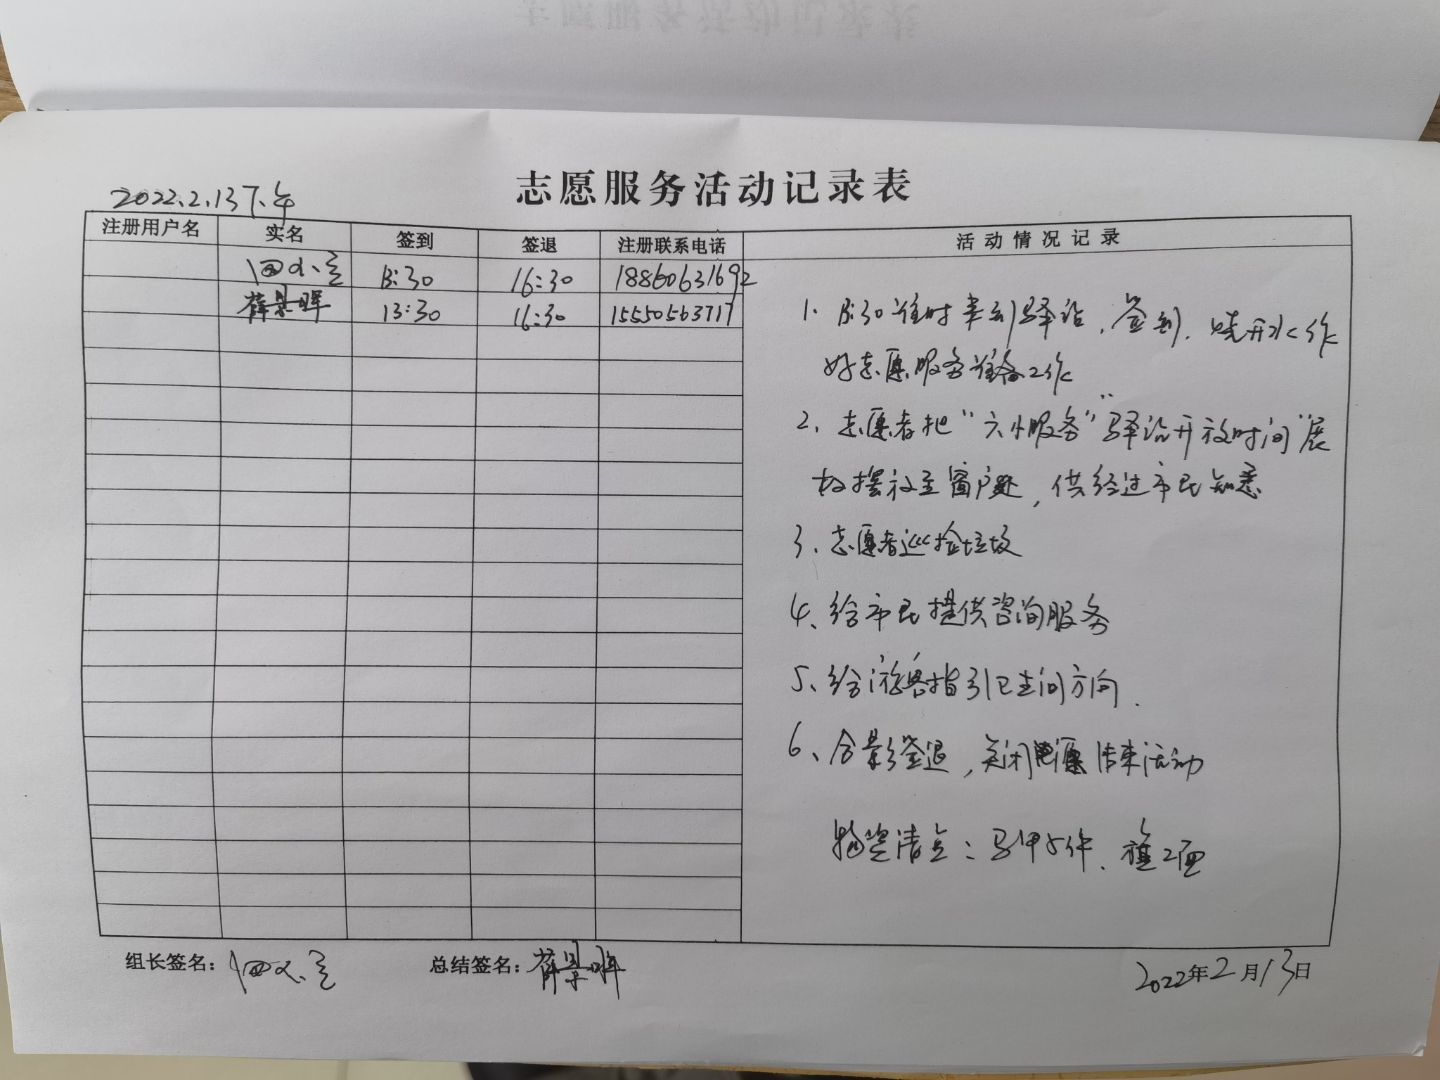 志愿服务活动记录表
2022.2.13下午
注册用户名 实名 签到 签退 注册联系电话 活动情况记录
13:30 16:30 18860631692
薛景晖 13:30 16:30 15550563717
1. 13:30准时来到驿站,签到,烧开水作
好志愿服务准备工作
2、志愿者把"六小服务""驿站开放时间"展
板摆放至窗户处,供经过市民知悉
3、志愿者巡捡垃圾
4、给市民提供咨询服务
5、给游客指引卫生间方向.
6、合影签退,关闭电源结束活动
物资清点:马甲5件、旗2面
组长签名: 总结签名:薛景晖
2022年2月13日